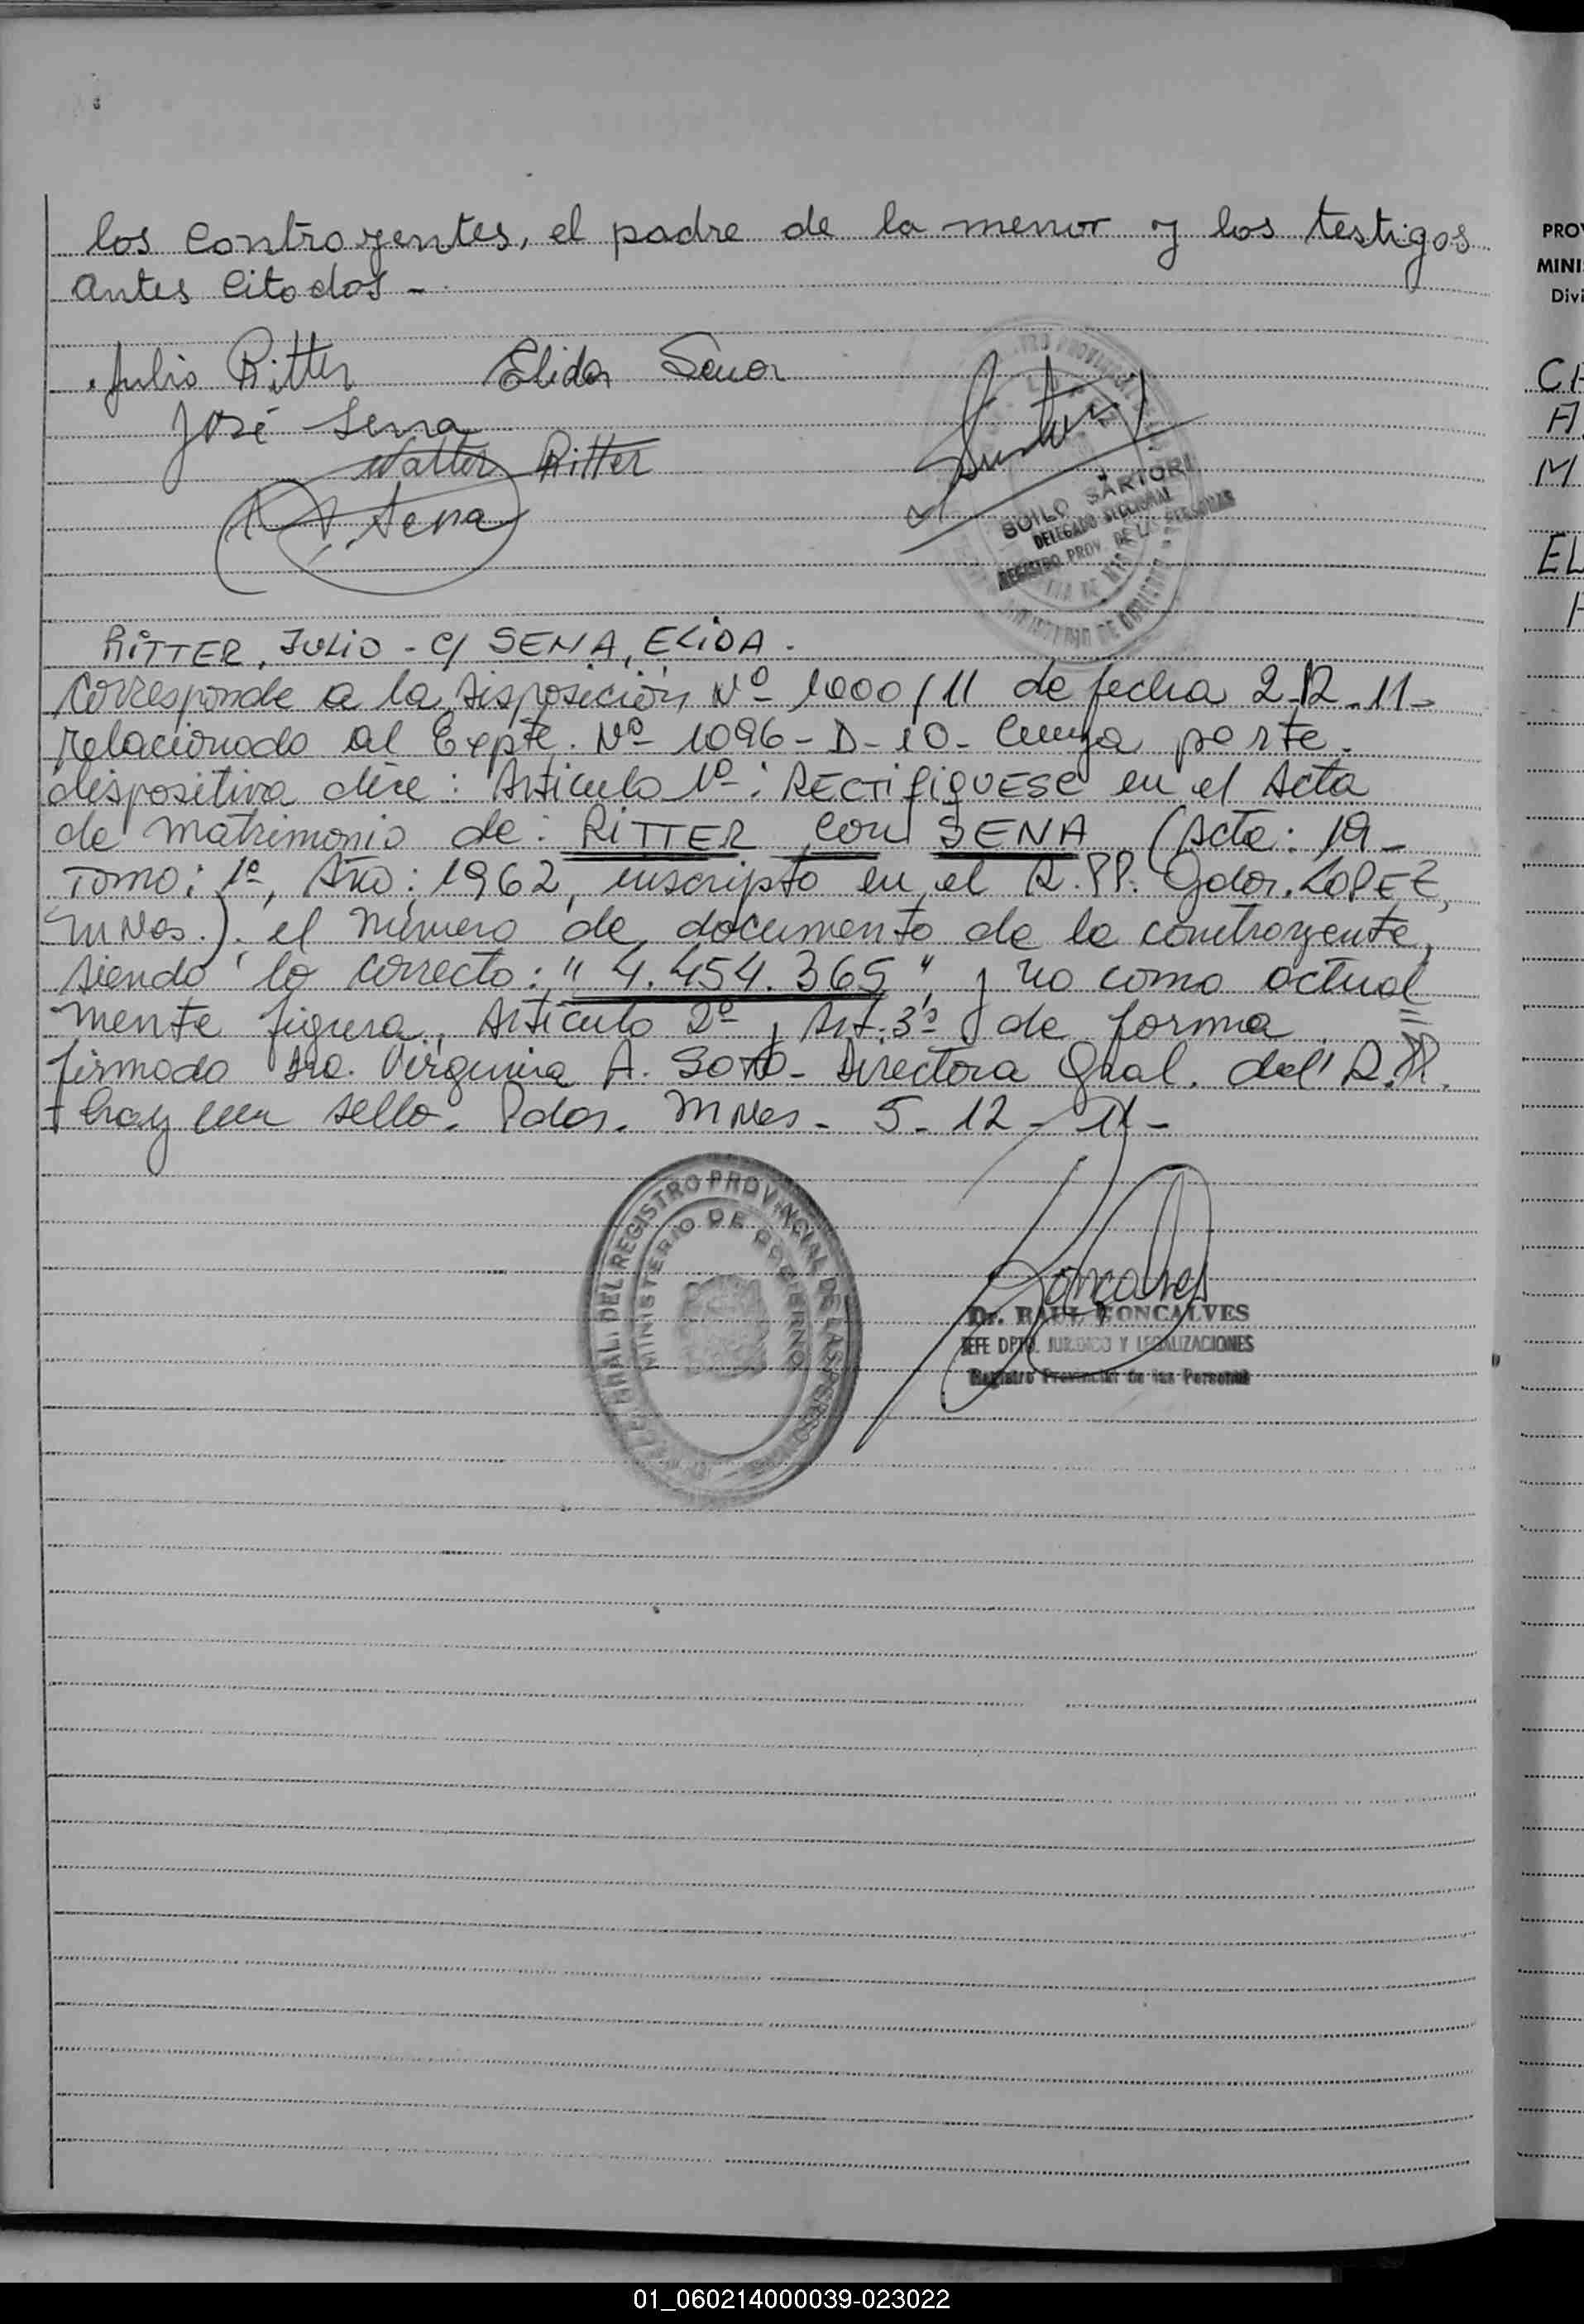 los contrayentes, el padre de la menor y los testigos
antes citados -
Julio Ritter Elida Sena
José Sena
Walter Ritter
Sena
SOILO SARTORI
DELEGADO SECCIONAL
REGISTRO PROV. DE LAS PERSONAS
RITTER, JULIO - C/ SENA, ELIDA.
Corresponde a la disposición Nº 1000/11 de fecha 2-12-11-
relacionado al Expte. Nº 1096-D-10- cuya parte
dispositiva dice: Artículo 1º: RECTIFIQUESE en el Acta
de matrimonio de: RITTER con SENA (Acta: 19-
Tomo: 1º, Año: 1962, inscripto en el R.PP. Gdor. LOPEZ,
Mnes.). el número de documento de la contrayente,
siendo lo correcto: "4.454.365", y no como actual
mente figura, Artículo 2º y Art. 3º de forma
firmado Sra. Virginia A. Soto - Directora Gral. del R.PP.
+ hay un sello. Pdas. Mnes - 5-12-11-
GRAL. DEL REGISTRO PROVINCIAL DE LAS PERSONAS
MINISTERIO DE GOBIERNO
Goncalves
Dr. RAUL GONCALVES
JEFE DPTO. JURIDICO Y LEGALIZACIONES
Registro Provincial de las Personas
PROV
MINIS
Divi
CA
A
M
EL
01_060214000039-023022